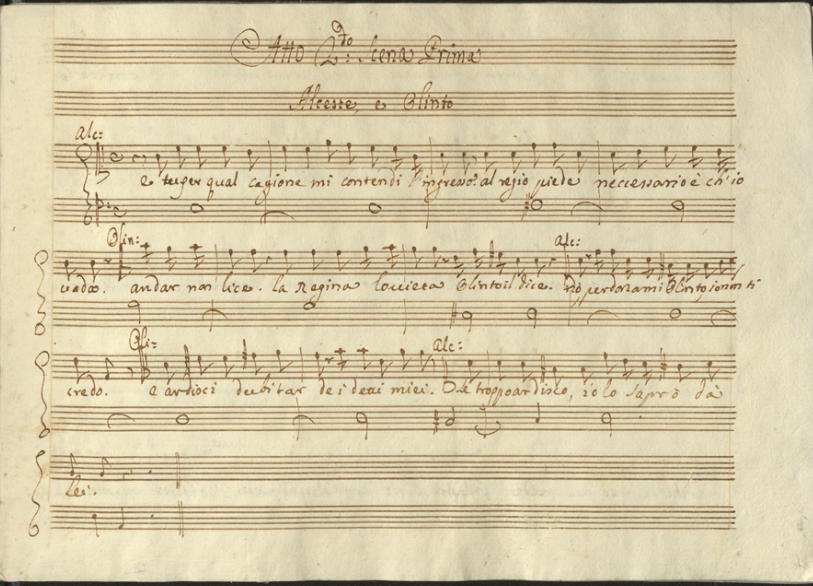 Atto 2.do Scena Prima
Alceste, e Olinto
Alc:
e tu per qual cagione mi contendi l'ingresso? al regio piede neccessario è ch'io
Olin: Alc:
vada. andar non lice. la Regina lo vieta Olinto il dice. Nò perdonami Olinto io non ti
Oli: Alc:
credo. e ardisci dubitar dei detti miei. troppo ardisco, io lo saprò da
lei.